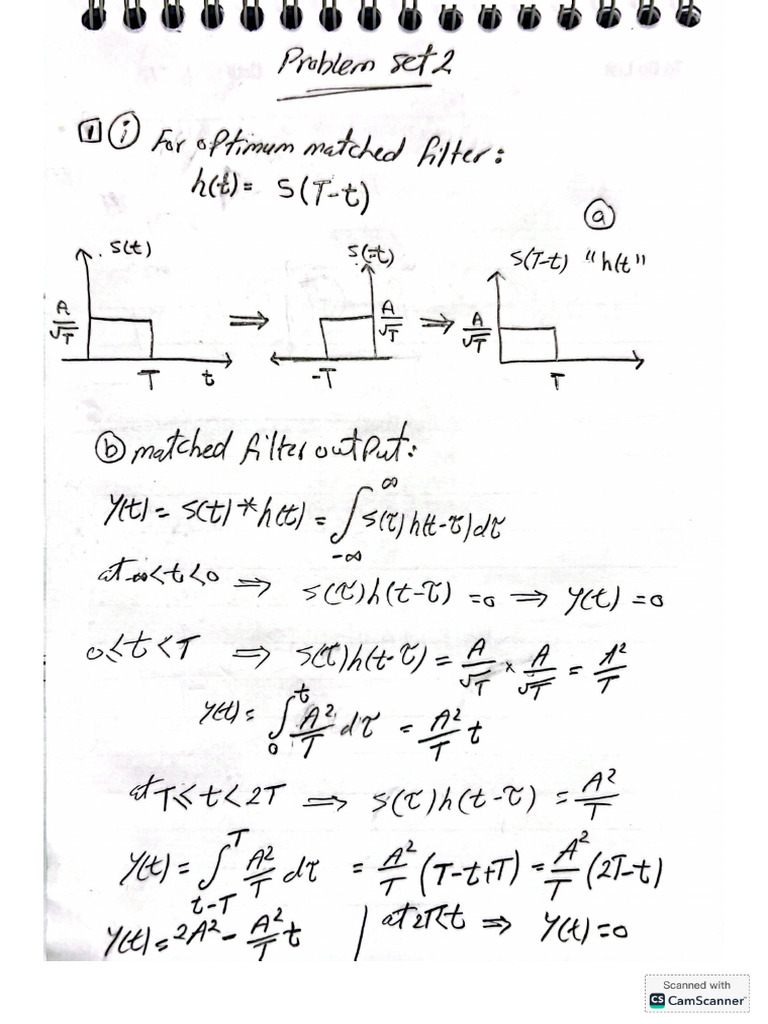 Problem set 2
1 i For optimum matched filter:
h(t) = S(T-t)
a
S(t)
S(-t)
S(T-t) "h(t"
A/√T
T
t
⇒
A/√T
-T
⇒
A/√T
T
b matched filter output:
y(t) = s(t) * h(t) = ∫_{-∞}^{∞} s(τ) h(t-τ) dτ
at -∞<t<0 ⇒ s(τ)h(t-τ) = 0 ⇒ y(t) = 0
0≤t<T ⇒ s(τ)h(t-τ) = A/√T × A/√T = A²/T
y(t) = ∫_0^t A²/T dτ = A²/T t
at T≤t<2T ⇒ s(τ)h(t-τ) = A²/T
y(t) = ∫_{t-T}^{T} A²/T dτ = A²/T (T-t+T) = A²/T (2T-t)
y(t) = 2A² - A²/T t | at 2T<t ⇒ y(t) = 0
Scanned with
CS CamScanner